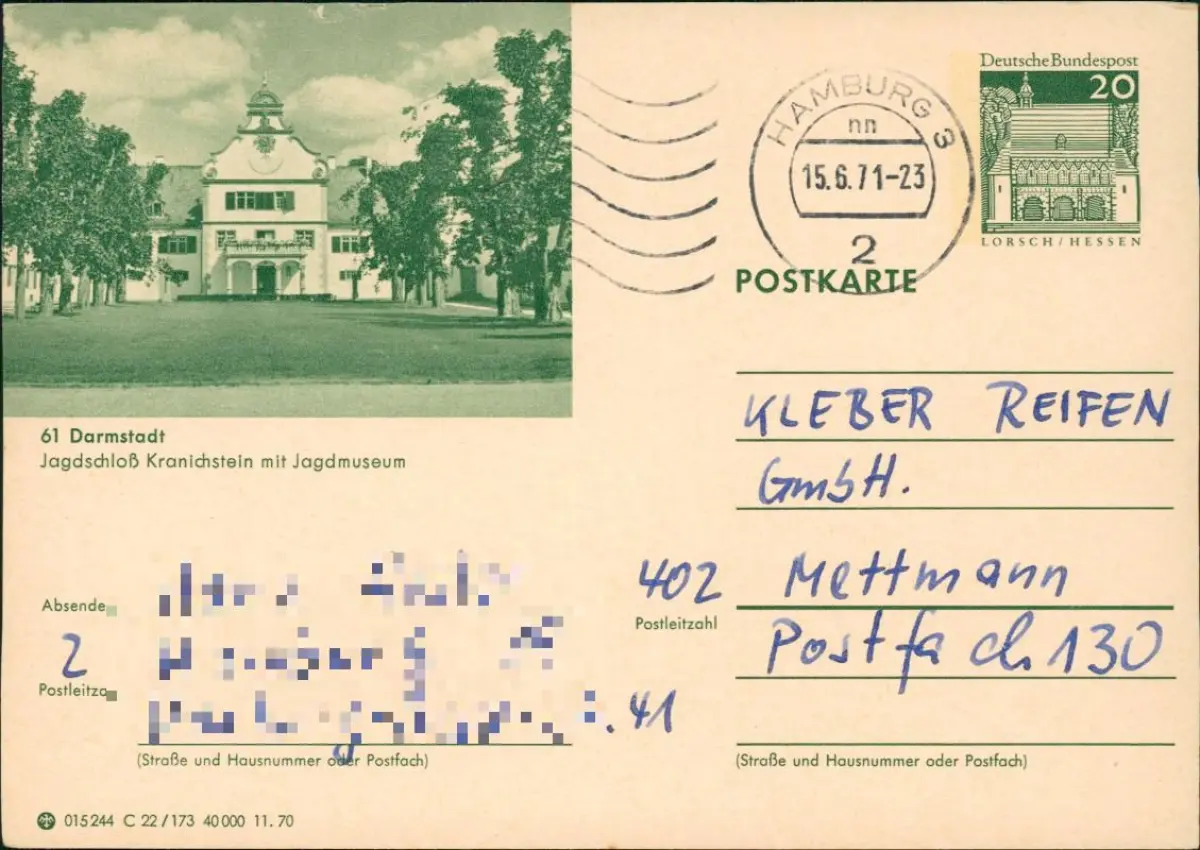 Deutsche Bundespost
20
LORSCH/HESSEN
HAMBURG 3
nn
15.6.71-23
2
POSTKARTE
61 Darmstadt
Jagdschloß Kranichstein mit Jagdmuseum
KLEBER REIFEN
GmbH.
402 Mettmann
Postleitzahl
Postfach 130
(Straße und Hausnummer oder Postfach)
Absende
2
Postleitza
. 41
(Straße und Hausnummer oder Postfach)
015244 C 22/173 40000 11.70